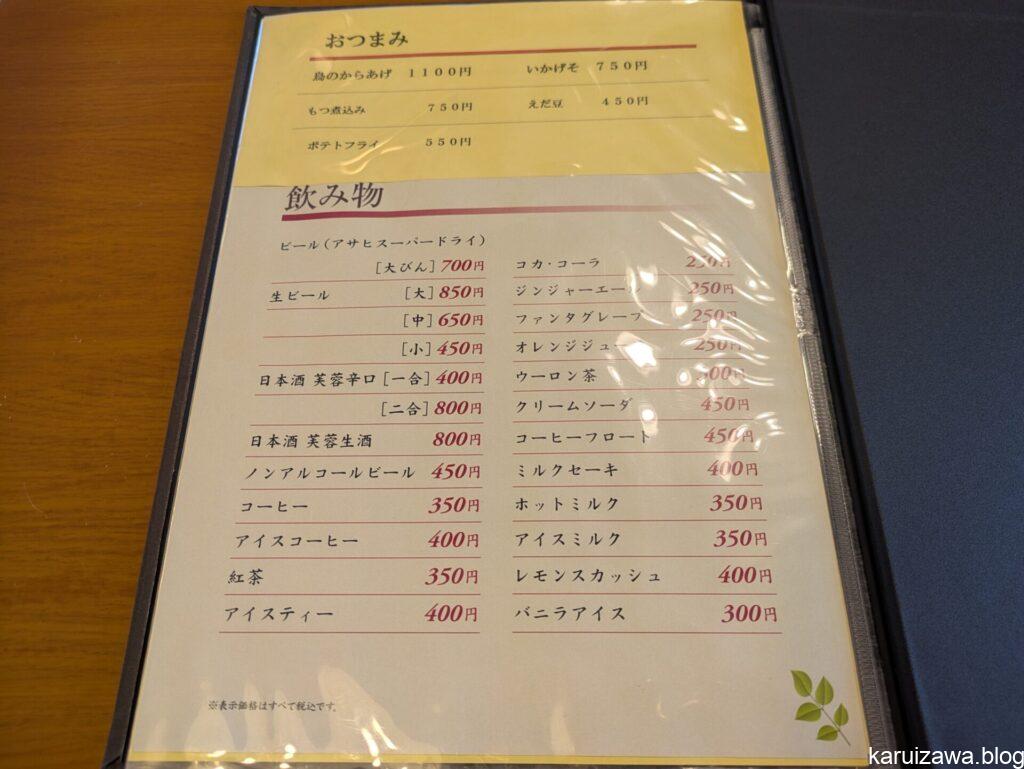 おつまみ
鳥のからあげ 1100円 いかげそ 750円
もつ煮込み 750円 えだ豆 450円
ポテトフライ 550円
飲み物
ビール(アサヒスーパードライ)
[大びん] 700円
生ビール [大] 850円
[中] 650円
[小] 450円
日本酒 芙蓉辛口 [一合] 400円
[二合] 800円
日本酒 芙蓉生酒 800円
ノンアルコールビール 450円
コーヒー 350円
アイスコーヒー 400円
紅茶 350円
アイスティー 400円
コカ・コーラ 250円
ジンジャーエール 250円
ファンタグレープ 250円
オレンジジュー 250円
ウーロン茶 300円
クリームソーダ 450円
コーヒーフロート 450円
ミルクセーキ 400円
ホットミルク 350円
アイスミルク 350円
レモンスカッシュ 400円
バニラアイス 300円
※表示価格はすべて税込です。
karuizawa.blog